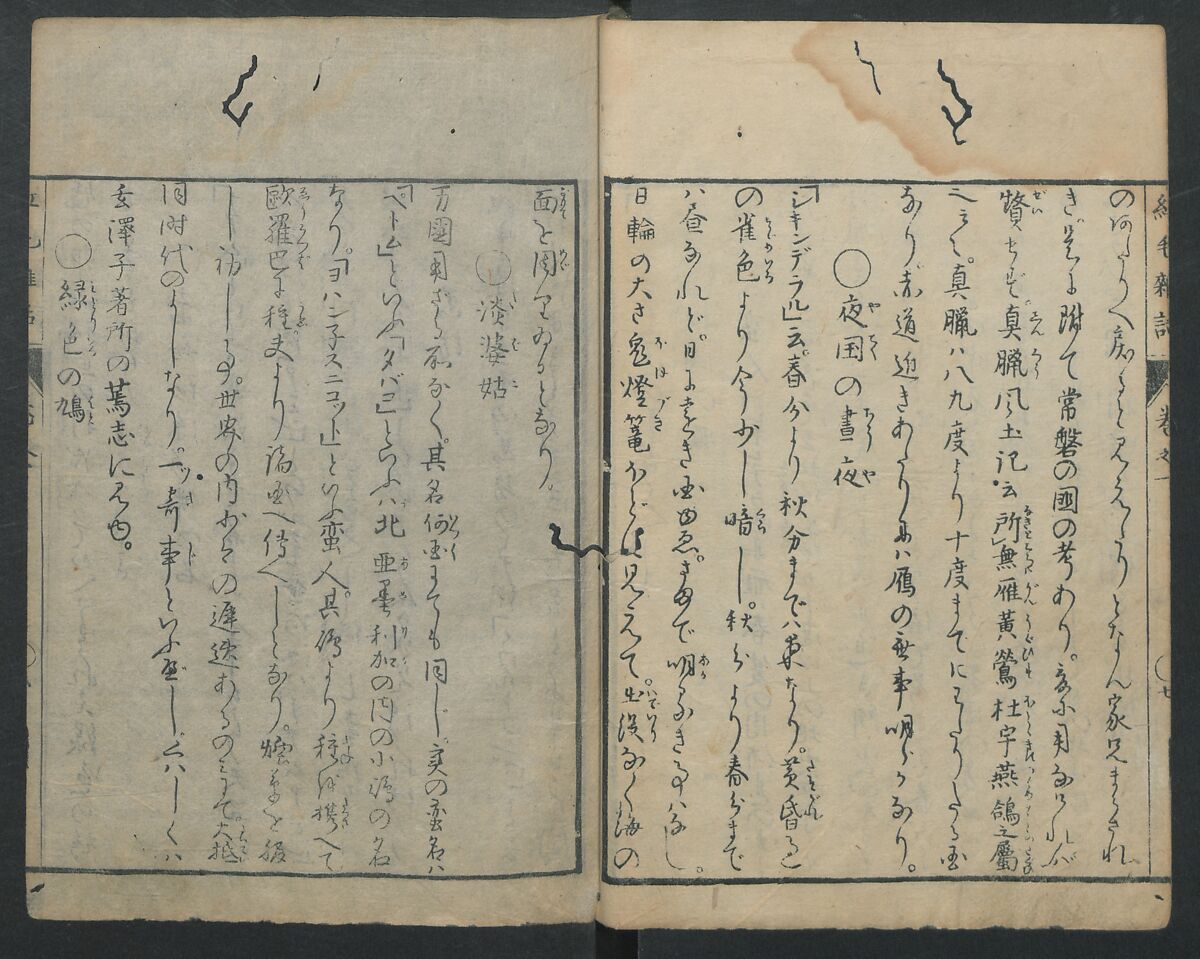 紅毛雑話 巻之一 ○七
のほとりへ戻るとも見えたりとなん家兄まうされ
き。是に附て常磐の国の考あり。爰に用なければ
贅せず真臘風土記云所無雁黄鶯杜宇燕鴿之屬
真臘ハ八九度より十度までにわたりたる国
なり赤道近きあたりにハ雁の無事明らかなり。
○夜国の晝夜
「シキンデラル」云春分より秋分までハ東なり。黄昏
の雀色より今少し暗し。秋分より春分まで
ハ昼なれど。日に遠き国ゆゑ。さまで明るき事ハなし。
日輪の大さ鬼燈篭ほどに見えて。出没なく海の
面を周りゐるとなり。
○淡婆姑
万國用ざる所なく。其名何国までも同じ。実の蛮名ハ
「ペトム」といふ「タバコ」といふハ北亜墨利加の内の小嶋の名
なり。「ヨハン子スニコット」といふ蛮人。其嶋より種を携へて
歐羅巴に種夫より諸国へ傳へしとなり。烟草を服
し初し事。世界の内少々の遅速あるのみにて大抵
同時代のよしなり。一ッ奇事といふべし。くハしくハ
玄澤子著所の蔫志に見ゆ。
○緑色の鳩